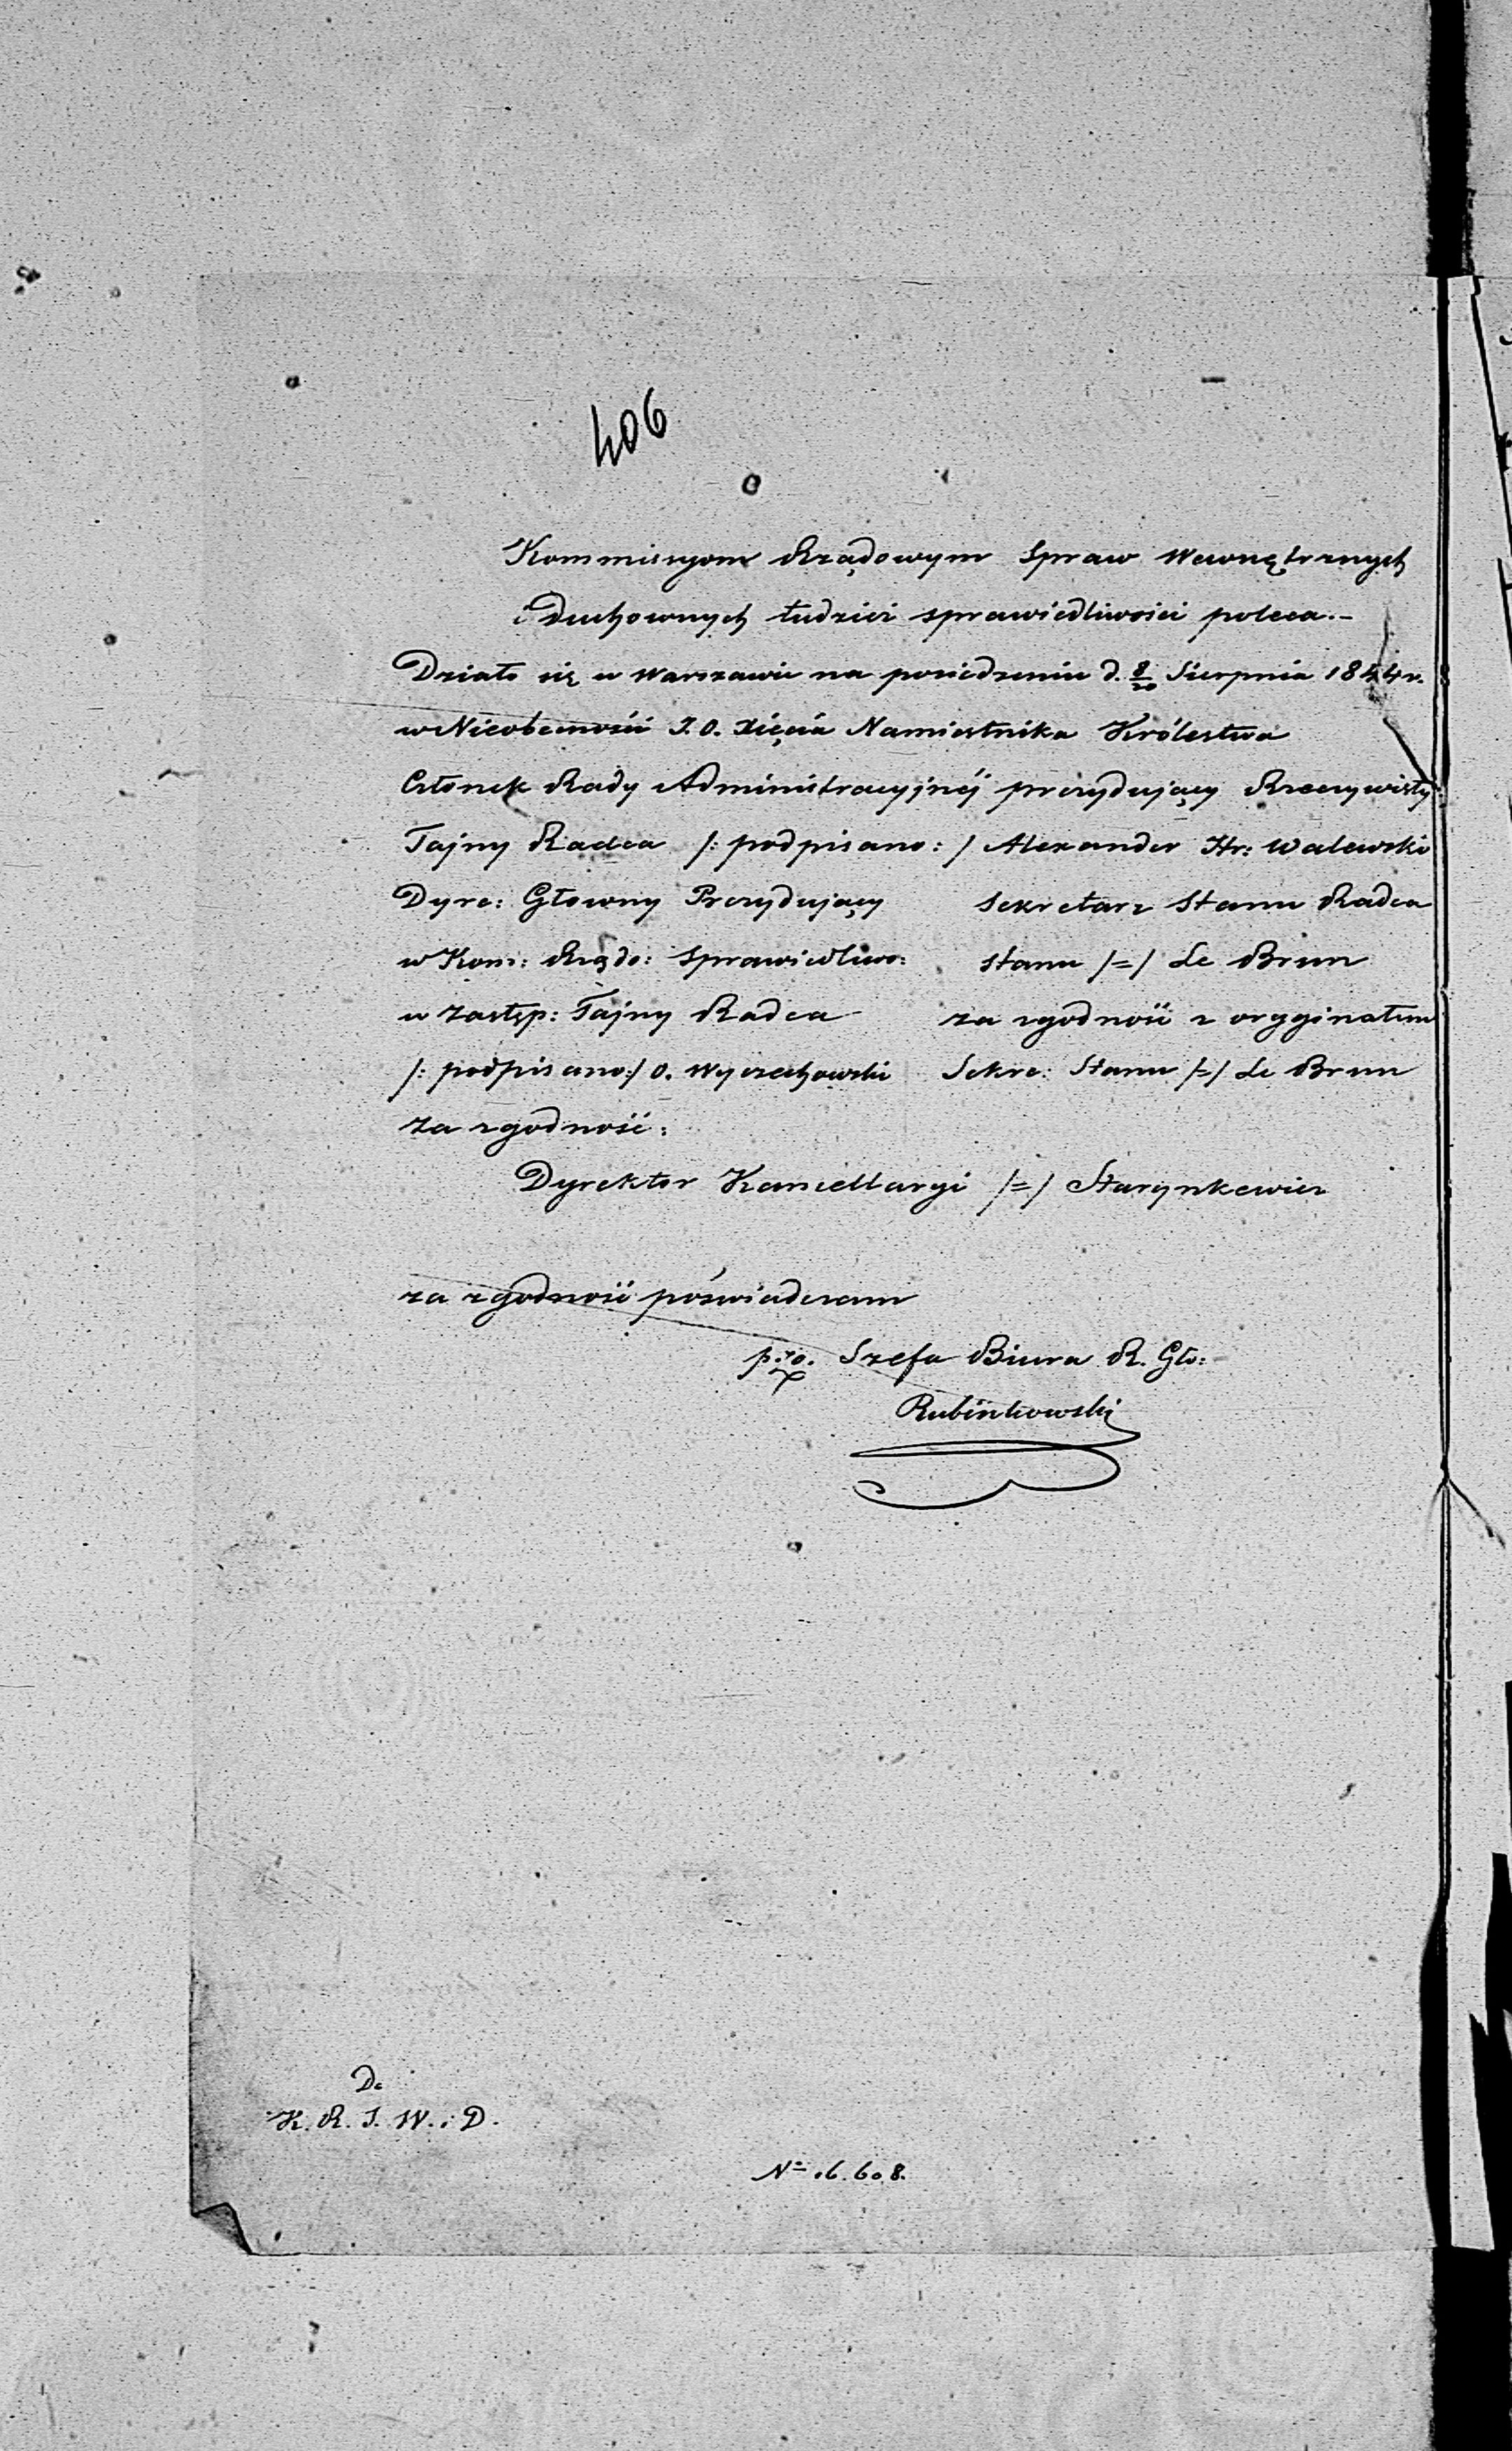 406
Kommissyom Rządowym Spraw Wewnętrznych
i Duchownych tudzież sprawiedliwości poleca.-
Działo się w Warszawie na posiedzeniu d. 8/20 Sierpnia 1844 r.
w Nieobecności J.O. Xięcia Namiestnika Królestwa
Członek Rady Administracyjnéj prezydujący Rzeczywisty
Tajny Radca /: podpisano: / Alexander Hr: Walewski
Dyre: Głowny Prezydujący
w Kom: Rządo: Sprawiedliwo:
w zastęp: Tajny Radca
/: podpisano:/ O. Wyczechowski
Sekretarz Stanu Radca
stanu /=/ Le Brun
za zgodność z oryginałem
Sekre: Stanu /=/ Le Brun
Za zgodność:
Dyrektor Kancellaryi /=/ Starynkewicz
za zgodność poświadczam
p. o. Szefa Biura R. Gło:
Rubinkowski
Do
K. R. S. W. i D.
No 16.608.